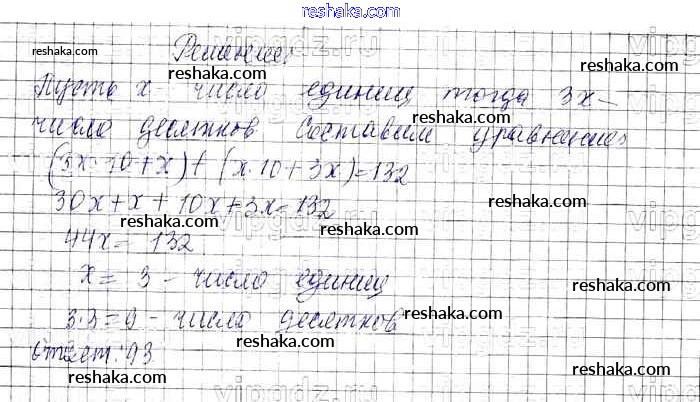 reshaka.com
Решение:
Пусть x – число единиц тогда 3x –
число десятков Составим уравнение:
(3x·10+x)+(x·10+3x)=132
30x+x+10x+3x=132
44x=132
x=3 – число единиц
3·3=9 – число десятков
Ответ: 93
reshaka.com
reshaka.com
reshaka.com
reshaka.com
reshaka.com
reshaka.com
reshaka.com
reshaka.com
reshaka.com
reshaka.com
reshaka.com
reshaka.com
vipgdz.ru
vipgdz.ru